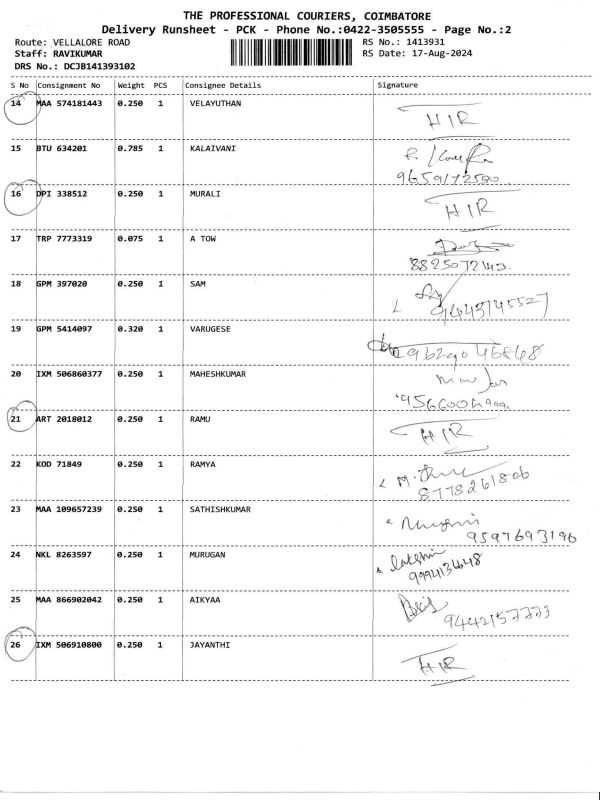 THE PROFESSIONAL COURIERS, COIMBATORE
Delivery Runsheet - PCK - Phone No.:0422-3505555 - Page No.:2
Route: VELLALORE ROAD RS No.: 1413931
Staff: RAVIKUMAR RS Date: 17-Aug-2024
DRS No.: DCJB141393102
S No Consignment No Weight PCS Consignee Details Signature
14 MAA 574181443 0.250 1 VELAYUTHAN HIR
15 BTU 634201 0.785 1 KALAIVANI
9659172500
16 DPI 338512 0.250 1 MURALI HIR
17 TRP 7773319 0.075 1 A TOW
18 GPM 397020 0.250 1 SAM
19 GPM 5414097 0.320 1 VARUGESE
20 IXM 506860377 0.250 1 MAHESHKUMAR
21 ART 2018012 0.250 1 RAMU HIR
22 KOD 71849 0.250 1 RAMYA
8778261806
23 MAA 109657239 0.250 1 SATHISHKUMAR
9597693196
24 NKL 8263597 0.250 1 MURUGAN
25 MAA 866902042 0.250 1 AIKYAA
26 IXM 506910800 0.250 1 JAYANTHI HIR